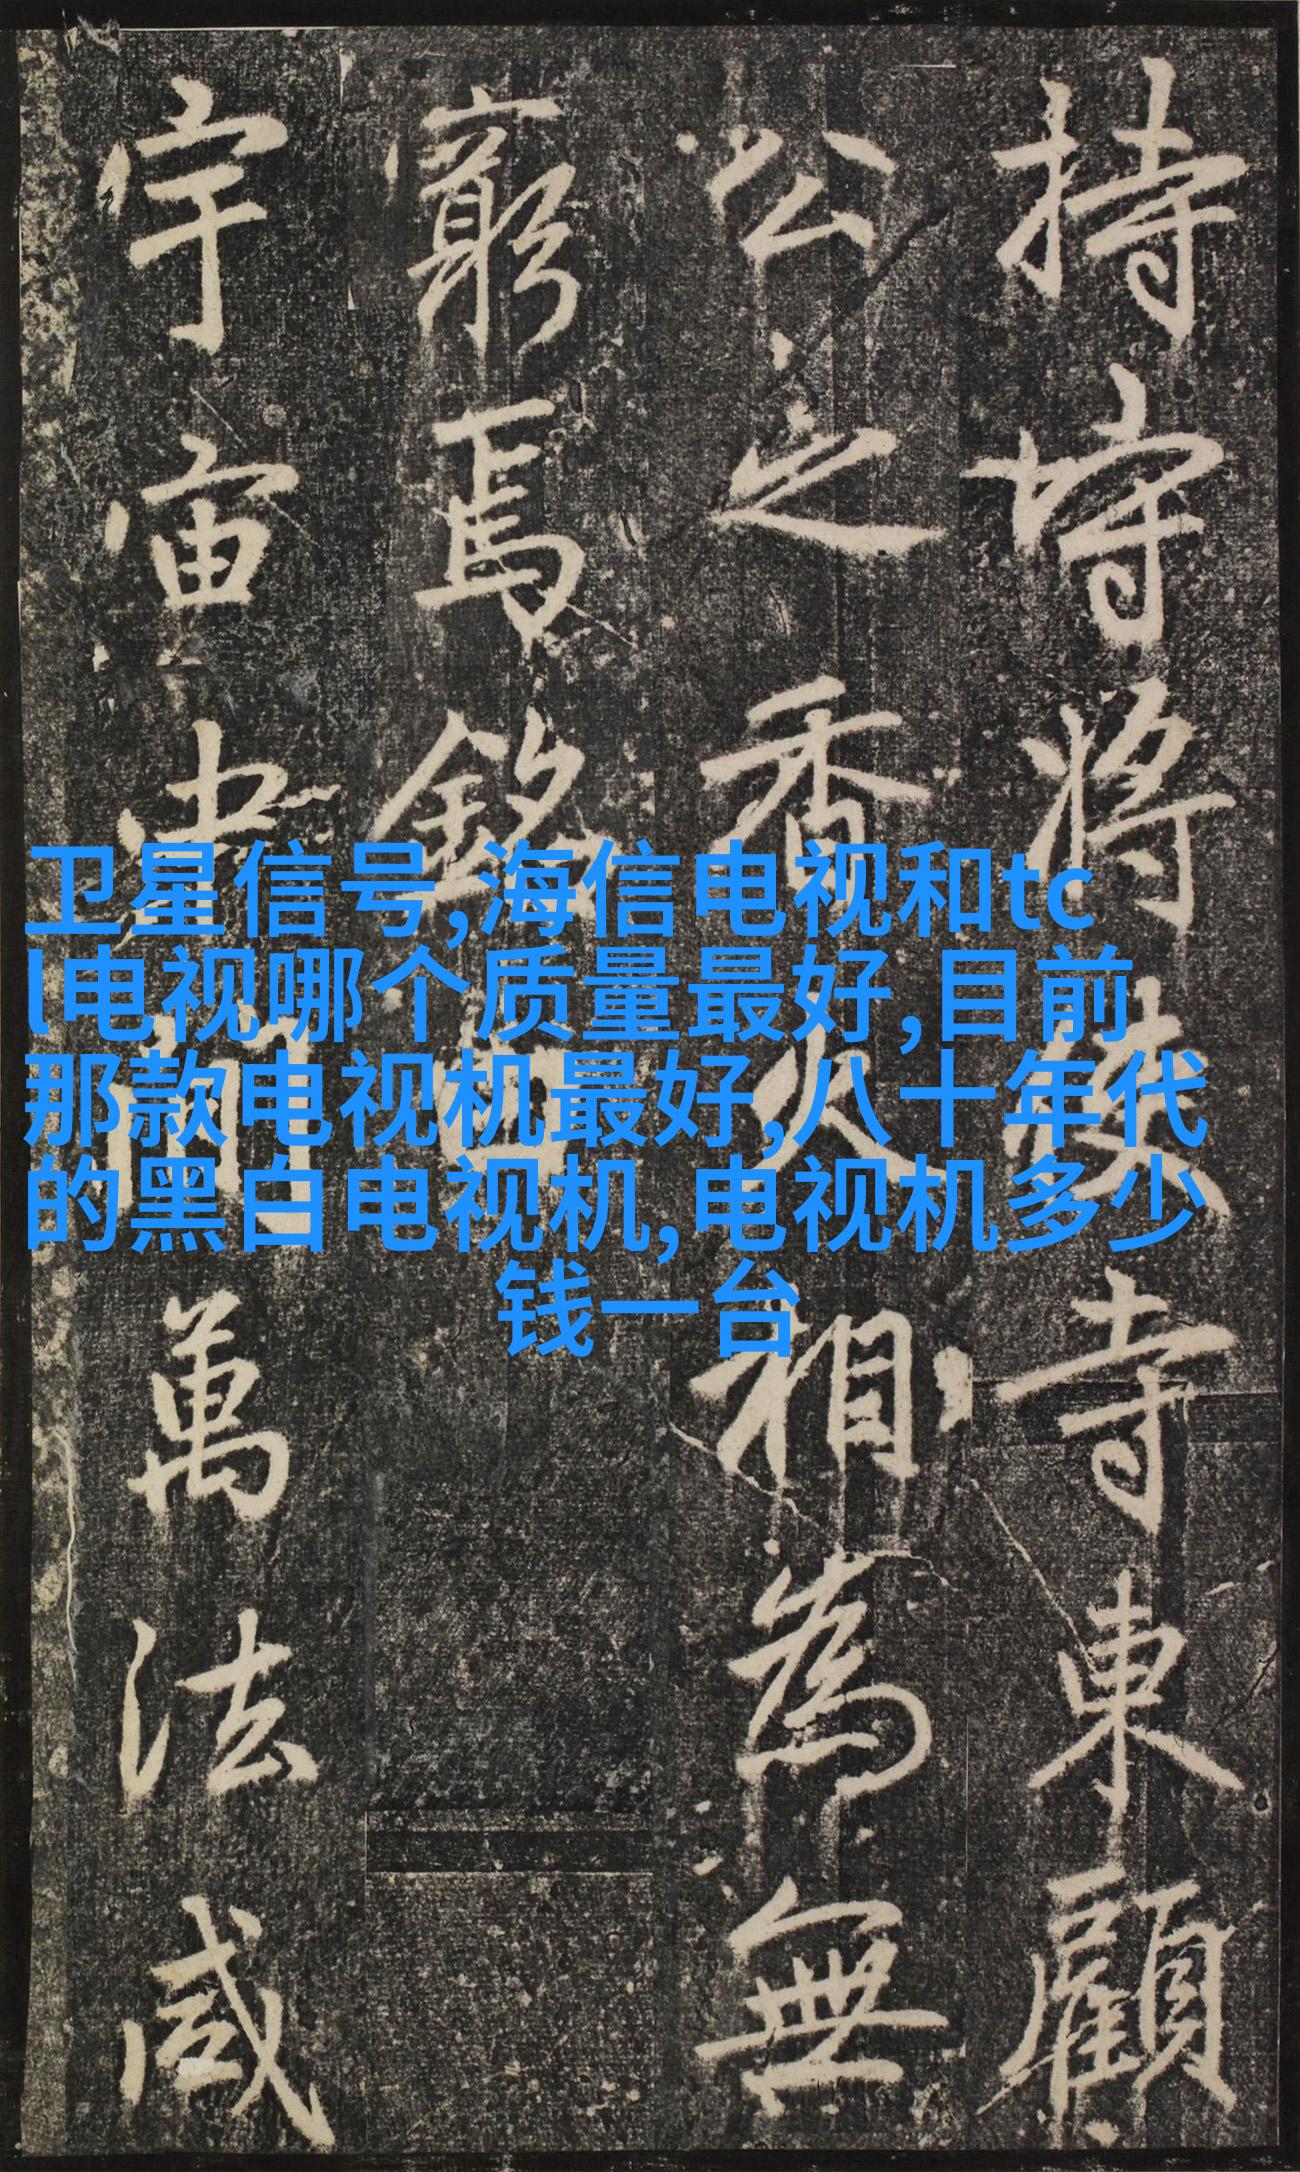 持将寺東顧
公之香火相為無
窮焉銘曰
宇宙間萬法咸
卫星信号,海信电视和tc
l电视哪个质量最好,目前
那款电视机最好,八十年代
的黑白电视机,电视机多少
钱一台